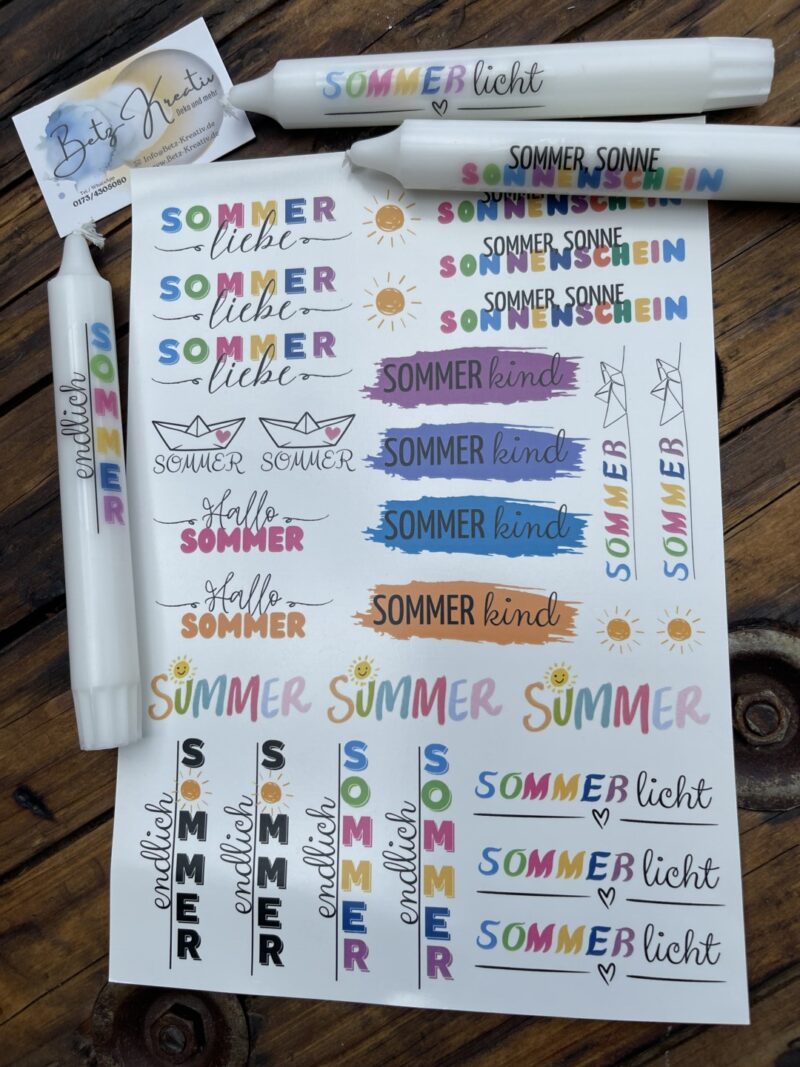 Betz-Kreativ
Deko und mehr
Info@Betz-Kreativ.de
www.Betz-Kreativ.de
Tel./WhatsApp
0173/4305080
SOMMER licht
SOMMER, SONNE
SONNENSCHEIN
endlich
SOMMER
SOMMER
liebe
SOMMER
liebe
SOMMER
liebe
SOMMER, SONNE
SONNENSCHEIN
SOMMER, SONNE
SONNENSCHEIN
SOMMER, SONNE
SONNENSCHEIN
SOMMER kind
SOMMER kind
SOMMER kind
SOMMER kind
SOMMER
SOMMER
SOMMER
SOMMER
Hallo
SOMMER
Hallo
SOMMER
SUMMER
SUMMER
SUMMER
endlich
SOMMER
endlich
SOMMER
endlich
SOMMER
endlich
SOMMER
SOMMER licht
SOMMER licht
SOMMER licht